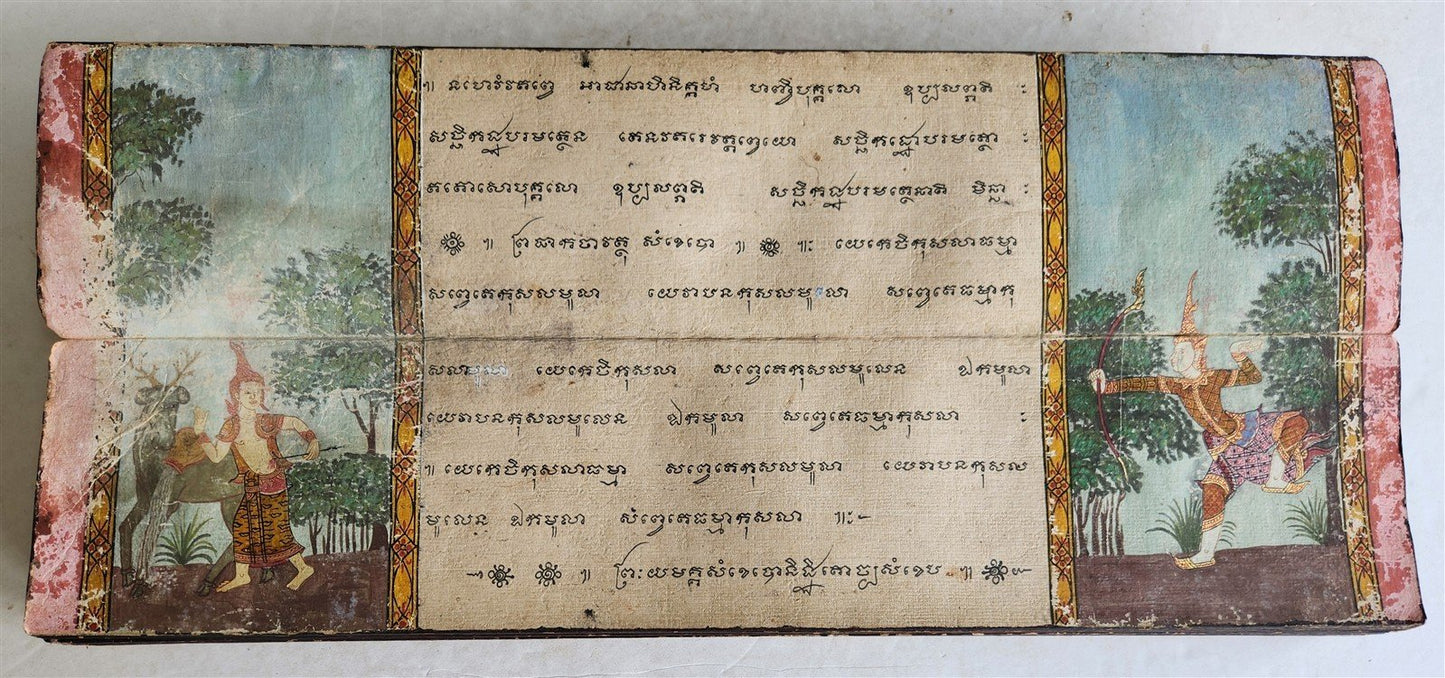 ៕ នហេវំវតព្វេ អាជានាហិនិគ្គហំ ហញ្ចិបុគ្គលោ ឧប្បលព្ភតិ ះ
សច្ឆិកដ្ឋបរមត្ថេន តេនវតរេវត្តព្វេយោ សច្ឆិកដ្ឋោបរមត្ថោ ះ
តតោសោបុគ្គលោ ឧប្បលព្ភតិ សច្ឆិកដ្ឋបរមត្ថេនាតិ មិច្ឆា ះ
៕ កថាវត្ថុ សំខេបោ ៕ ៕ះ យេកេចិកុសលាធម្មា
សព្វេតេកុសលមូលា យេវាបនកុសលមូលា សព្វេតេធម្មាកុ
សលាមូលា យេកេចិកុសលា សព្វេតេកុសលមូលេន ឯកមូលា
យេវាបនកុសលមូលេន ឯកមូលា សព្វេតេធម្មាកុសលា ះ
៕ យេកេចិកុសលាធម្មា សព្វេតេកុសលមូលា យេវាបនកុសល
មូលេន ឯកមូលា សព្វេតេធម្មាកុសលា ៕ះ
៕ ព្រះយមគ្គសំខេបោនិដ្ឋិតោ ៕